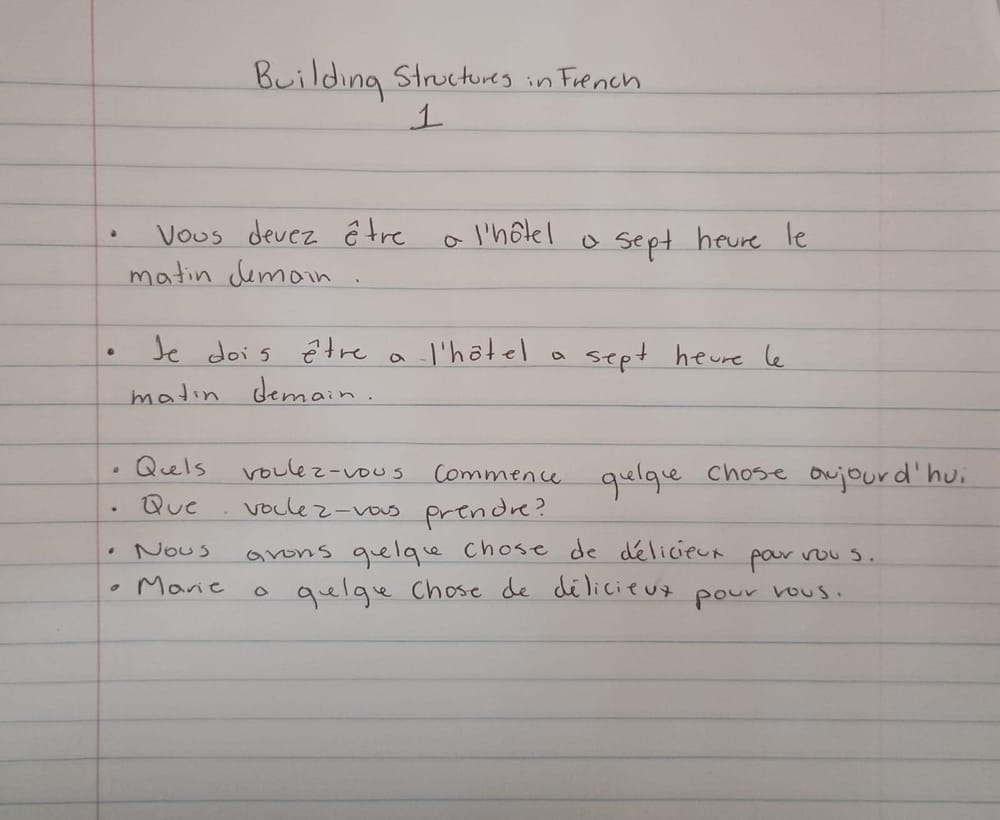 Building Structures in French
1
• Vous devez être a l'hôtel a sept heure le
matin demain.
• Je dois être a l'hôtel a sept heure le
matin demain.
• Quels voulez-vous commence quelque chose aujourd'hui
• Que voulez-vous prendre?
• Nous avons quelque chose de délicieux pour vous.
• Marie a quelque chose de délicieux pour vous.